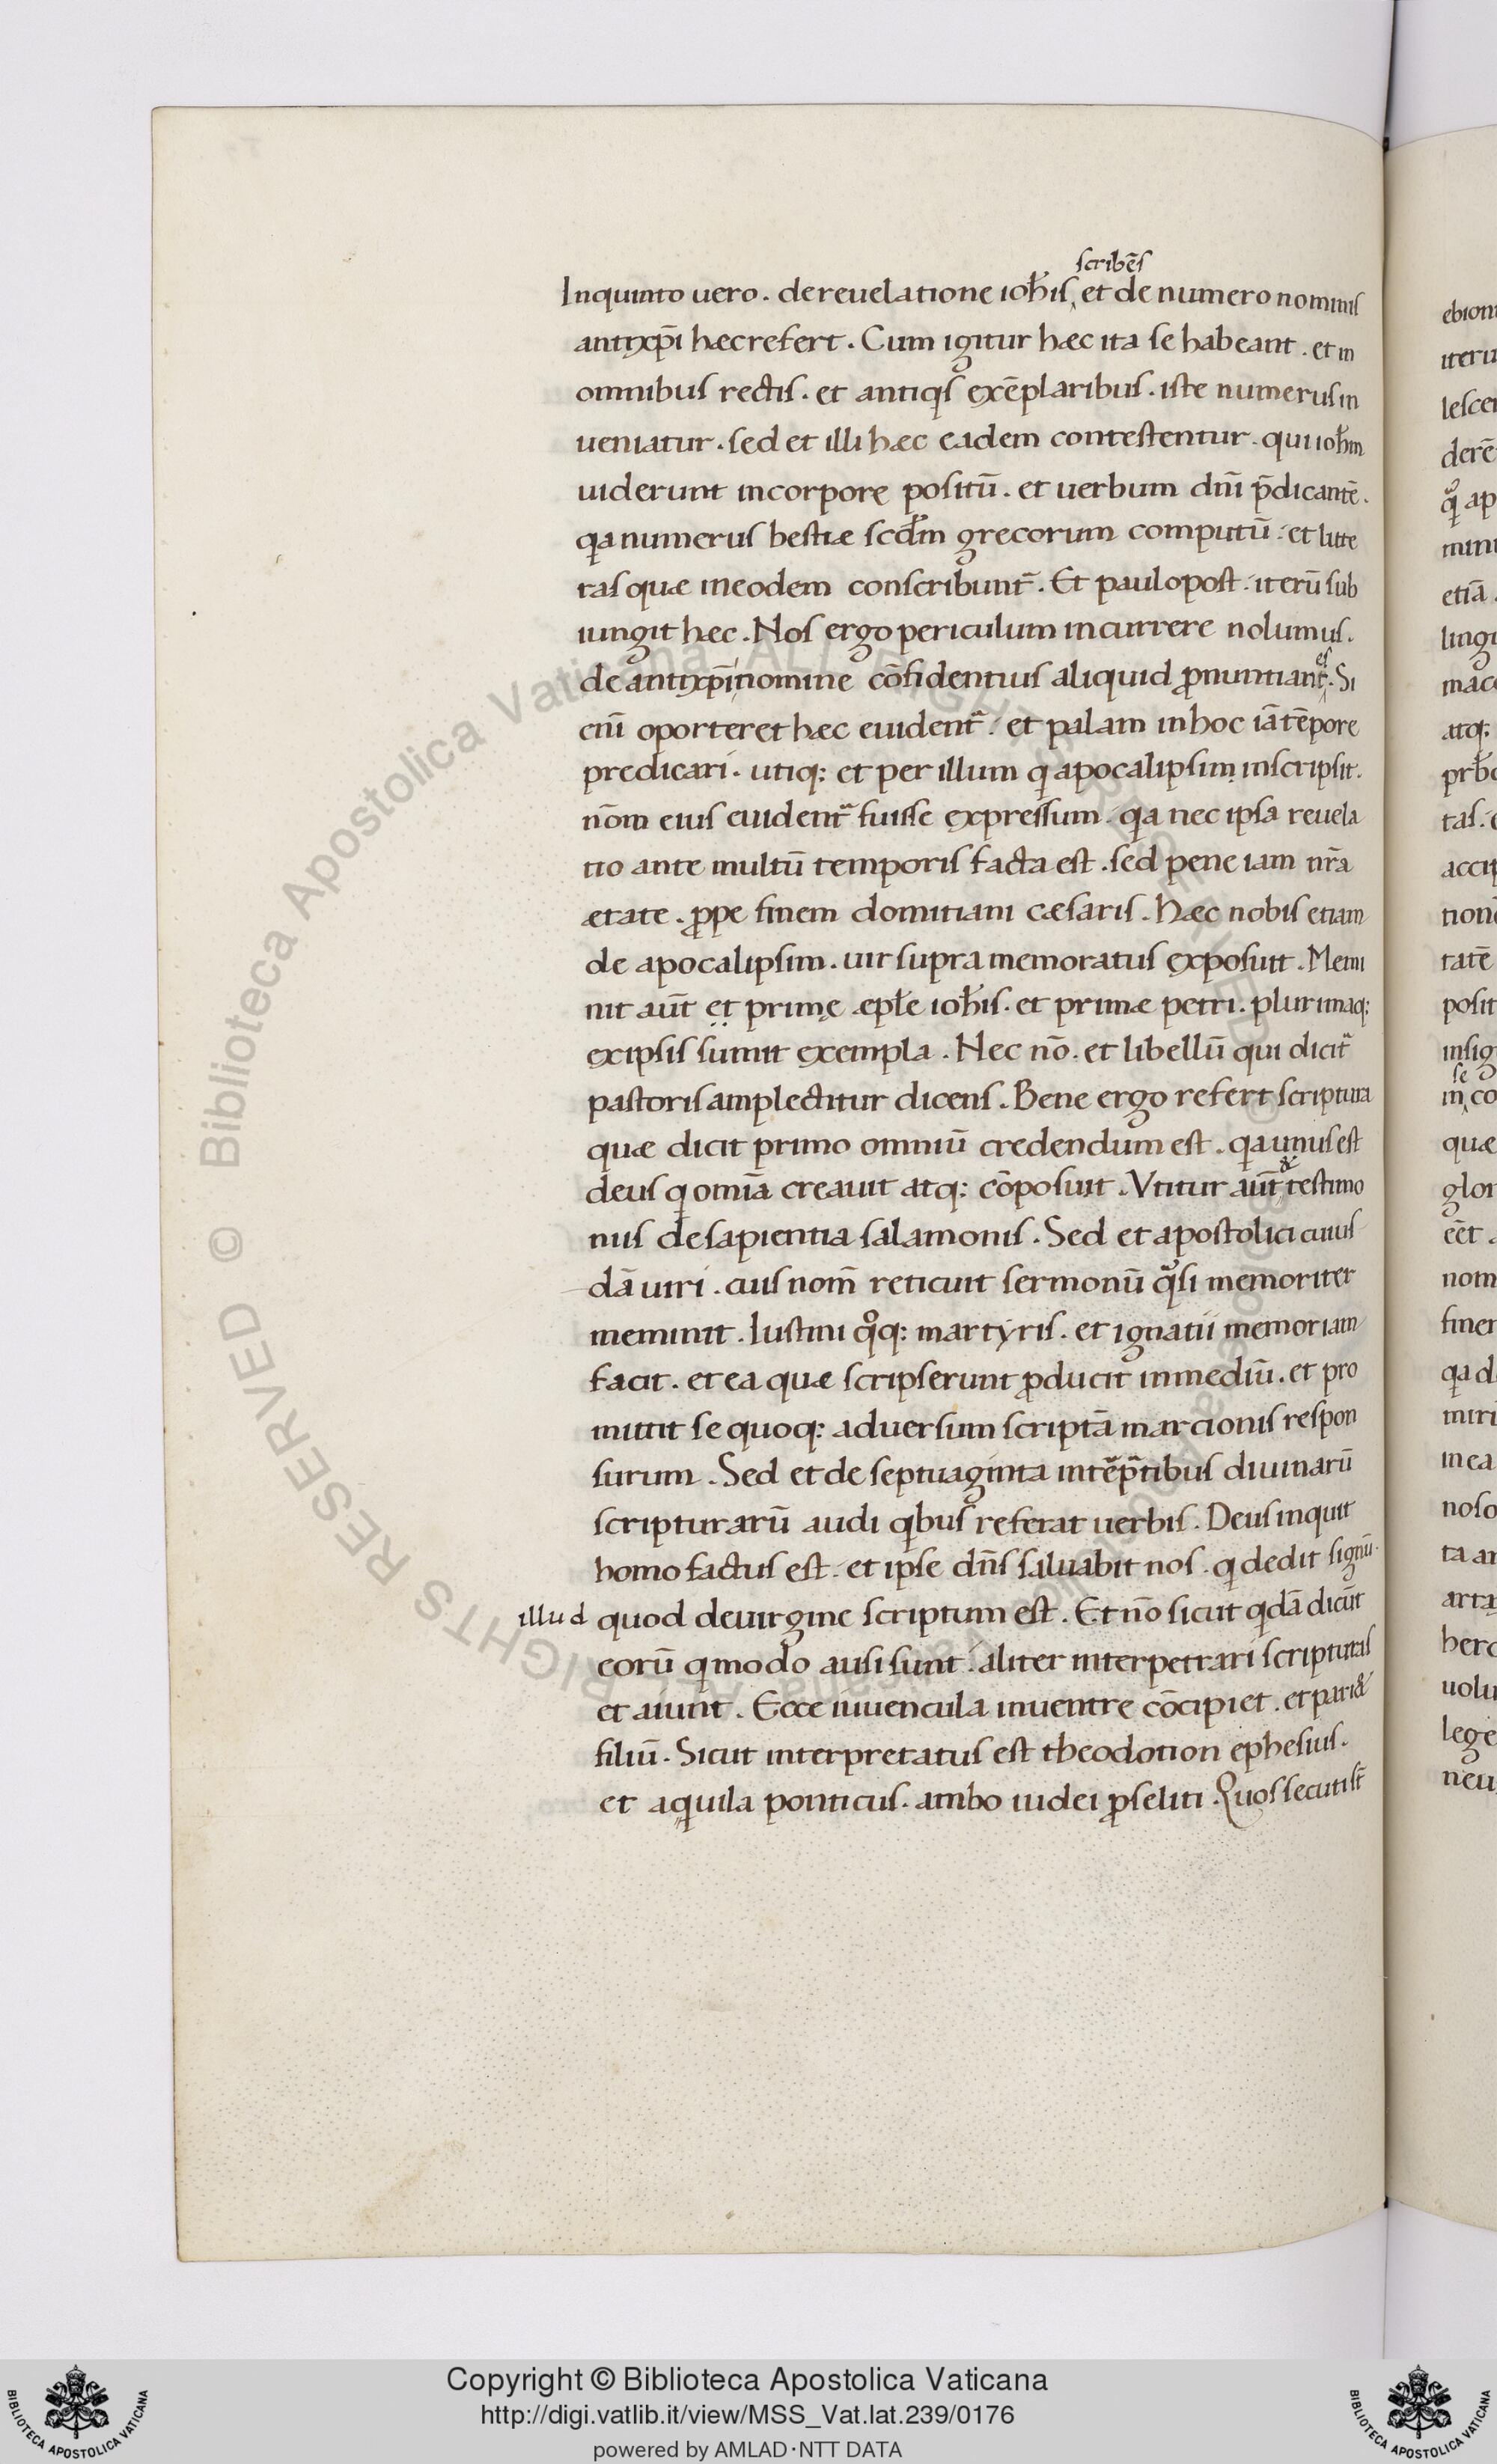 scribēs
Inquinto uero . dereuelatione ioh̄is, et de numero nominis
antixp̄i hæc refert . Cum igitur hæc ita se habeant . et in
omnibus rectis . et antiqis exēplaribus . iste numerus in
ueniatur . sed et illi hæc eadem contestentur . qui ioh̄m
uiderunt incorpore positū . et uerbum dn̄i p̄dicantē .
qa numerus bestiæ scd̄m grecorum computū . et litte
ras quæ ineodem conscribunt̄ . Et paulopost . iterū sub
iungit hęc . Nos ergo periculum incurrere nolumus .
de antixp̄i nomine cōfidentius aliquid ꝓnuntiantes . Si
eni̅ oporteret hæc euident̄ . et palam inhoc iā tēpore
predicari . utiq: et per illum qi apocalipsim inscripsit .
nōm eius euident̄ fuisse expressum . qa nec ipsa reuela
tio ante multū temporis facta est . sed pene iam nr̄a
ætate . ꝓpe finem domitiani cæsaris . Hæc nobis etiam
de apocalipsim . uir supra memoratus exposuit . Memi
nit aut̄ et primę æpłe ioh̄is . et primæ petri . plurimaq:
exipsis sumit exempla . Nec nō . et libellū qui dicit̄
pastoris amplectitur dicens . Bene ergo refert scriptura
quæ dicit primo omniū credendum est . qa unus est
deus qi omīa creauit atq: cōposuit . Vtitur aut̄ & testimo
niis desapientia salamonis . Sed et apostolici cuius
dā uiri . cuis nom̄ reticuit sermonū qasi memoriter
meminit . Iustini qoq: martyris . et ignatii memoriam
facit . et ea quæ scripserunt ꝓducit inmediū . et pro
mittit se quoq: aduersum scriptā marcionis respon
surum . Sed et de septuaginta intēp̄tibus diuinarū
scripturarū audi qibus referat uerbis . Deus inquit
homo factus est . et ipse dn̄s saluabit nos . qi dedit signū .
illud quod deuirgine scriptum est . Et nō sicut qidā dicūt
eorū qi modo ausi sunt . aliter interpetrari scripturas
et aiunt . Ecce iuuencula inuentre cōcipiet . et pari&
filiū . Sicut interpretatus est theodotion ephesius .
et aquila ponticus . ambo iudei ꝓseliti . Quos secuti st̄
Copyright © Biblioteca Apostolica Vaticana
http://digi.vatlib.it/view/MSS_Vat.lat.239/0176
powered by AMLAD·NTT DATA